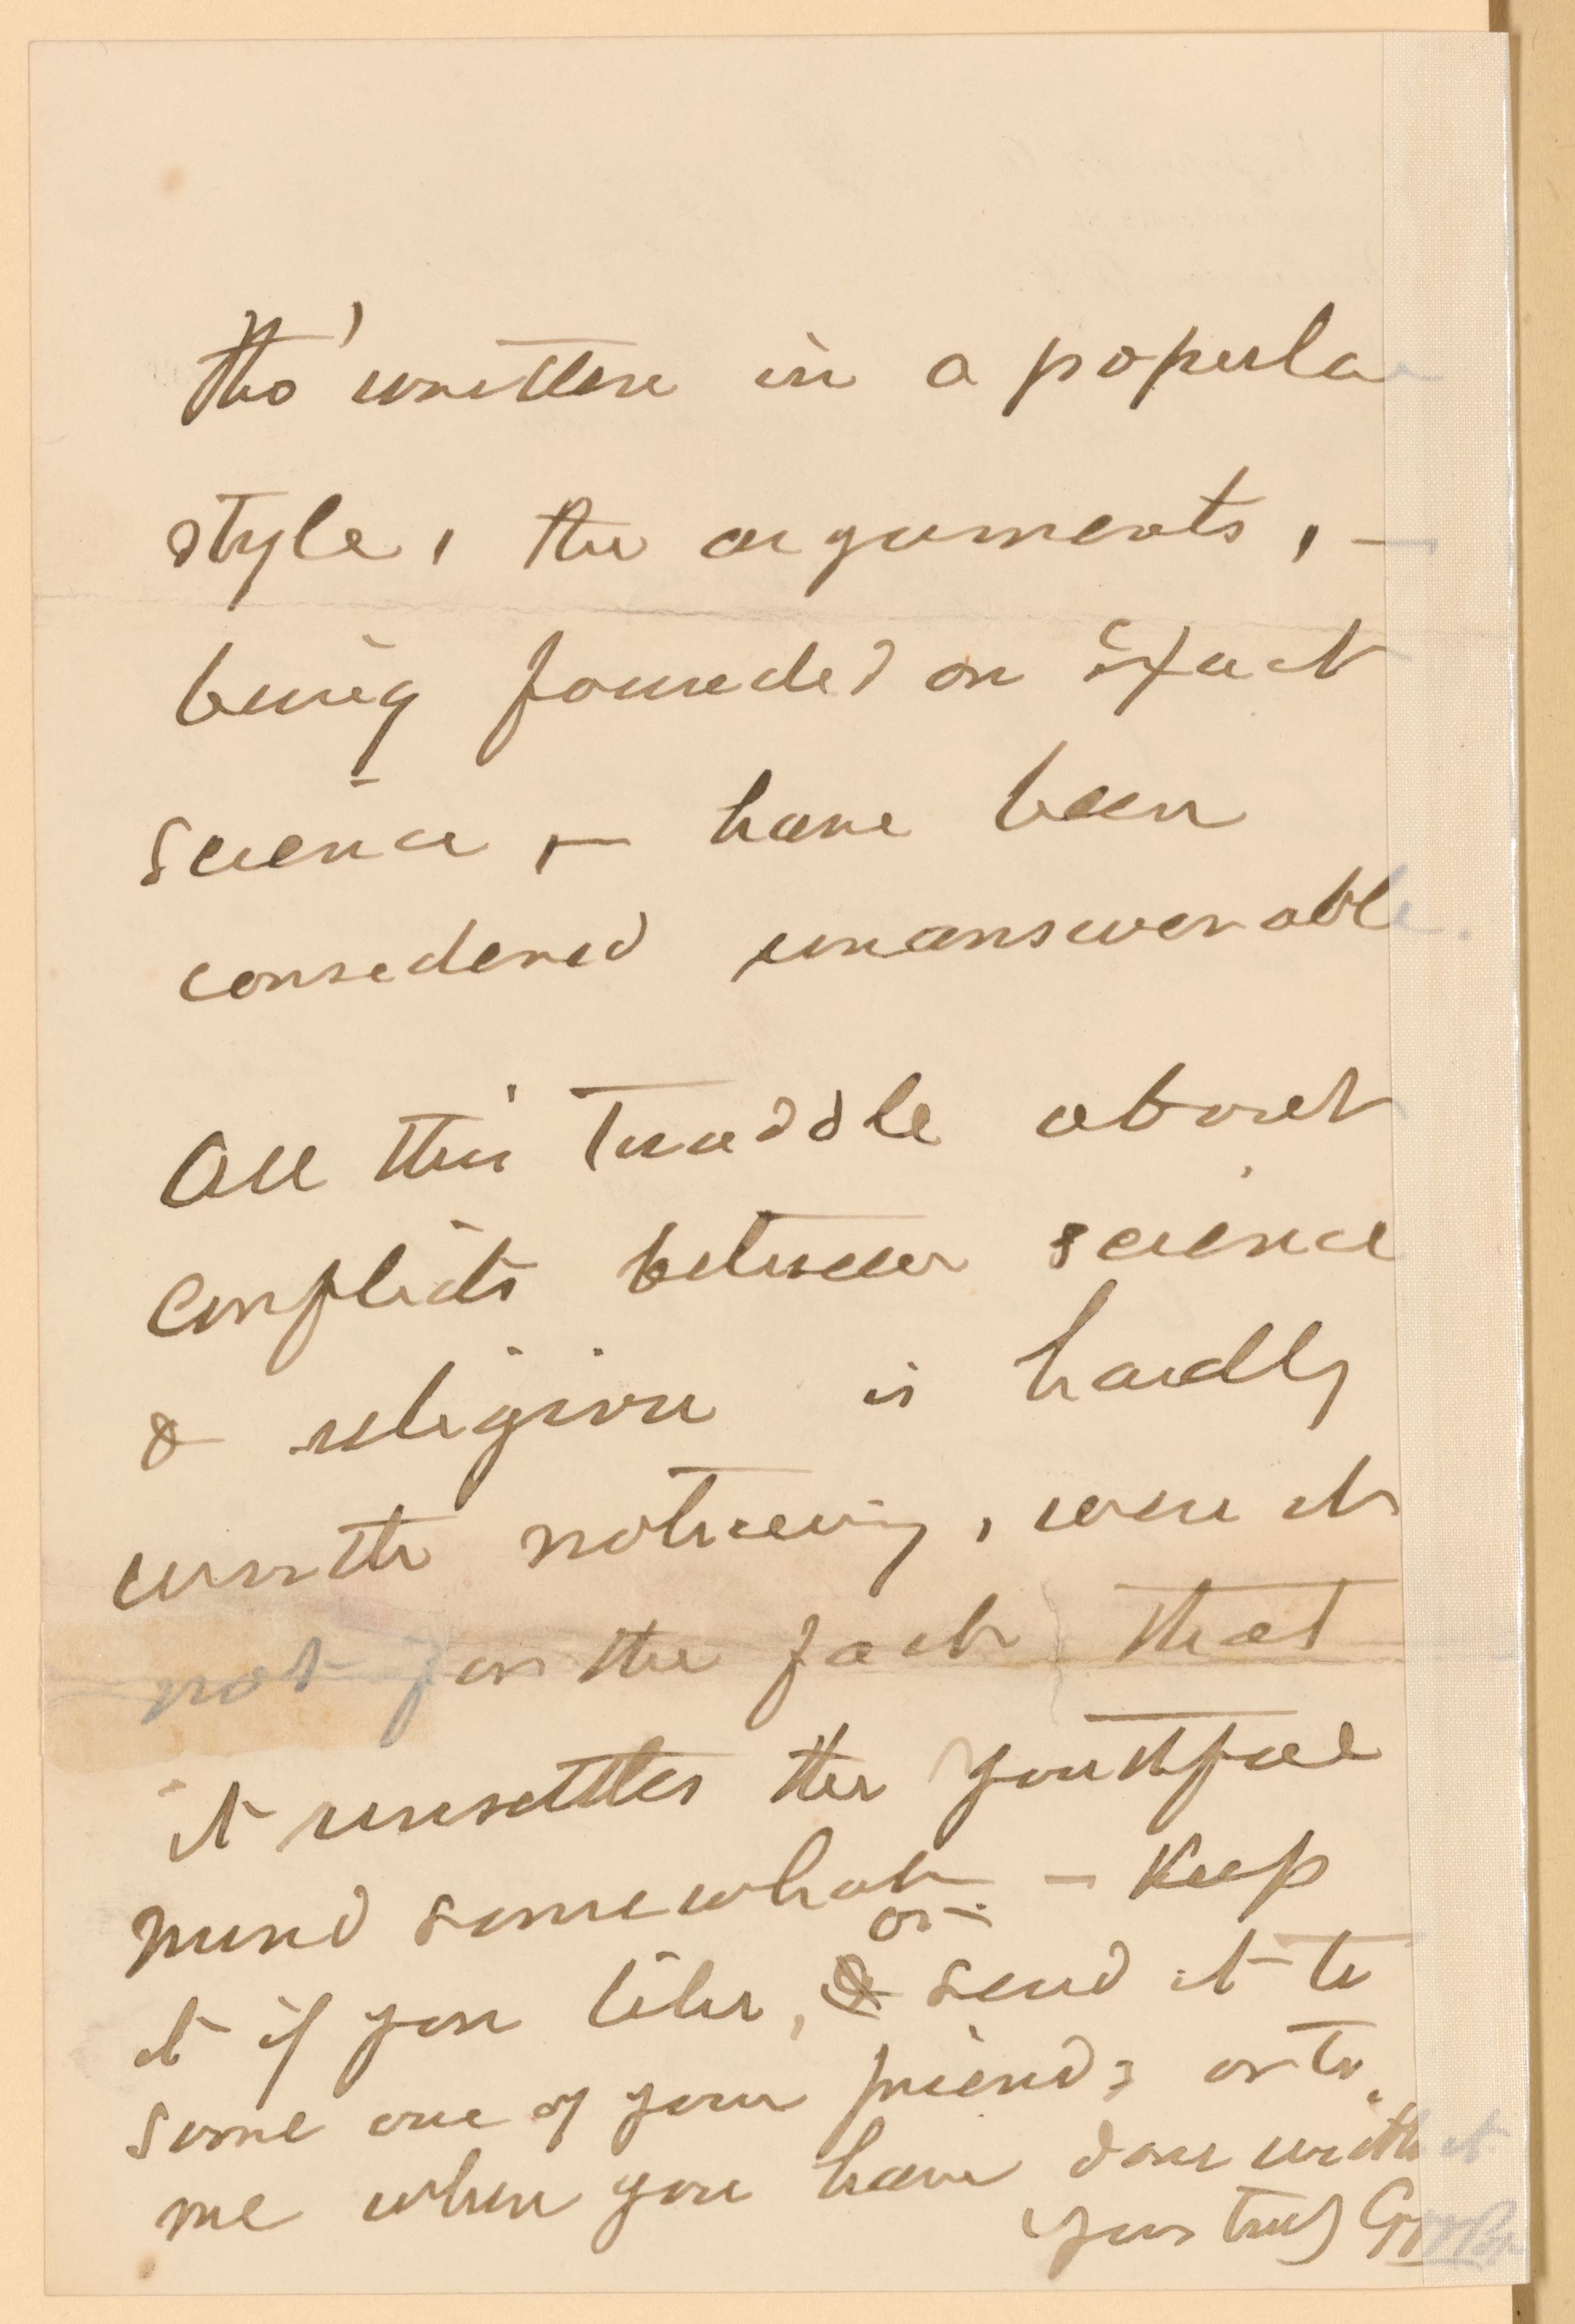 tho' written in a popular
style, the arguments, —
being founded on exact
science, — have been
considered unanswerable.
All this twaddle about
conflicts between science
& religion is hardly
worth noticeing, were it
not for the fact that
it unsettles the youthful
mind somewhat — Keep
it if you like, or send it to
some one of your friends or to
me when you have done with it
Yours truly